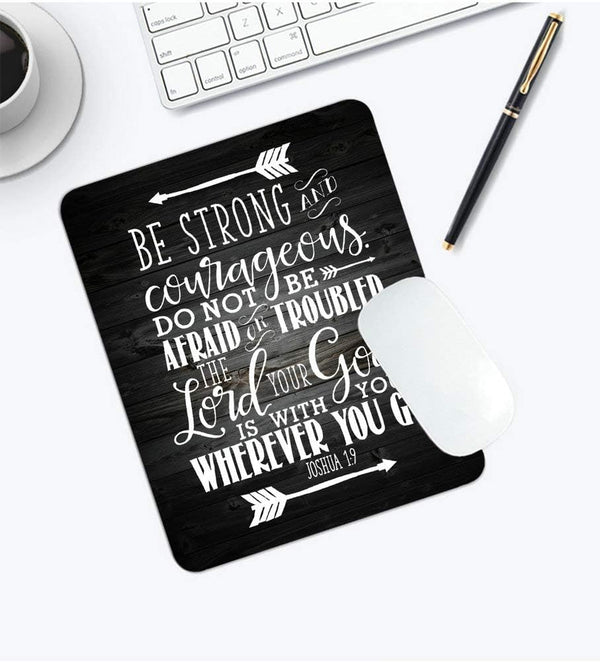 caps lock
shift
fn
control
option
command
BE STRONG AND
courageous.
DO NOT BE
AFRAID OR TROUBLED
THE
Lord YOUR Go
IS WITH YO
WHEREVER YOU G
JOSHUA 1:9